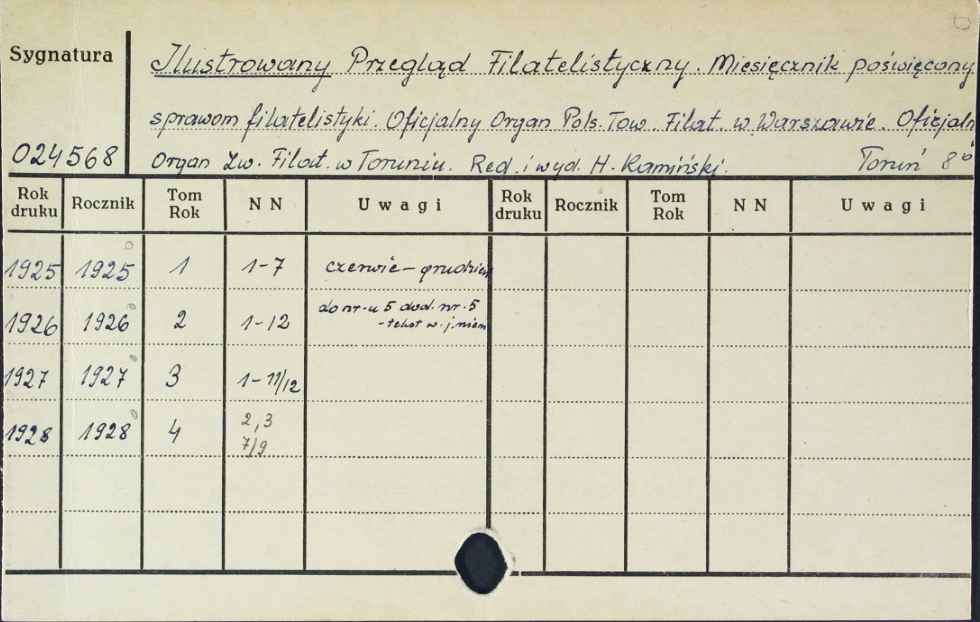 Sygnatura
Ilustrowany Przegląd Filatelistyczny. Miesięcznik poświęcony
sprawom filatelistyki. Oficjalny Organ Pols. Tow. Filat. w Warszawie. Oficjaln
024568 Organ Zw. Filat. w Toruniu. Red. i wyd. H. Kamiński. Toruń 8°
Rok druku Rocznik Tom Rok NN Uwagi Rok druku Rocznik Tom Rok NN Uwagi
1925 1925 1 1-7 czerwie - grudzień
1926 1926 2 1-12 do nr-u 5 dod. nr. 5
-tekst w. j. niem
1927 1927 3 1-11/12
1928 1928 4 2,3
7/9